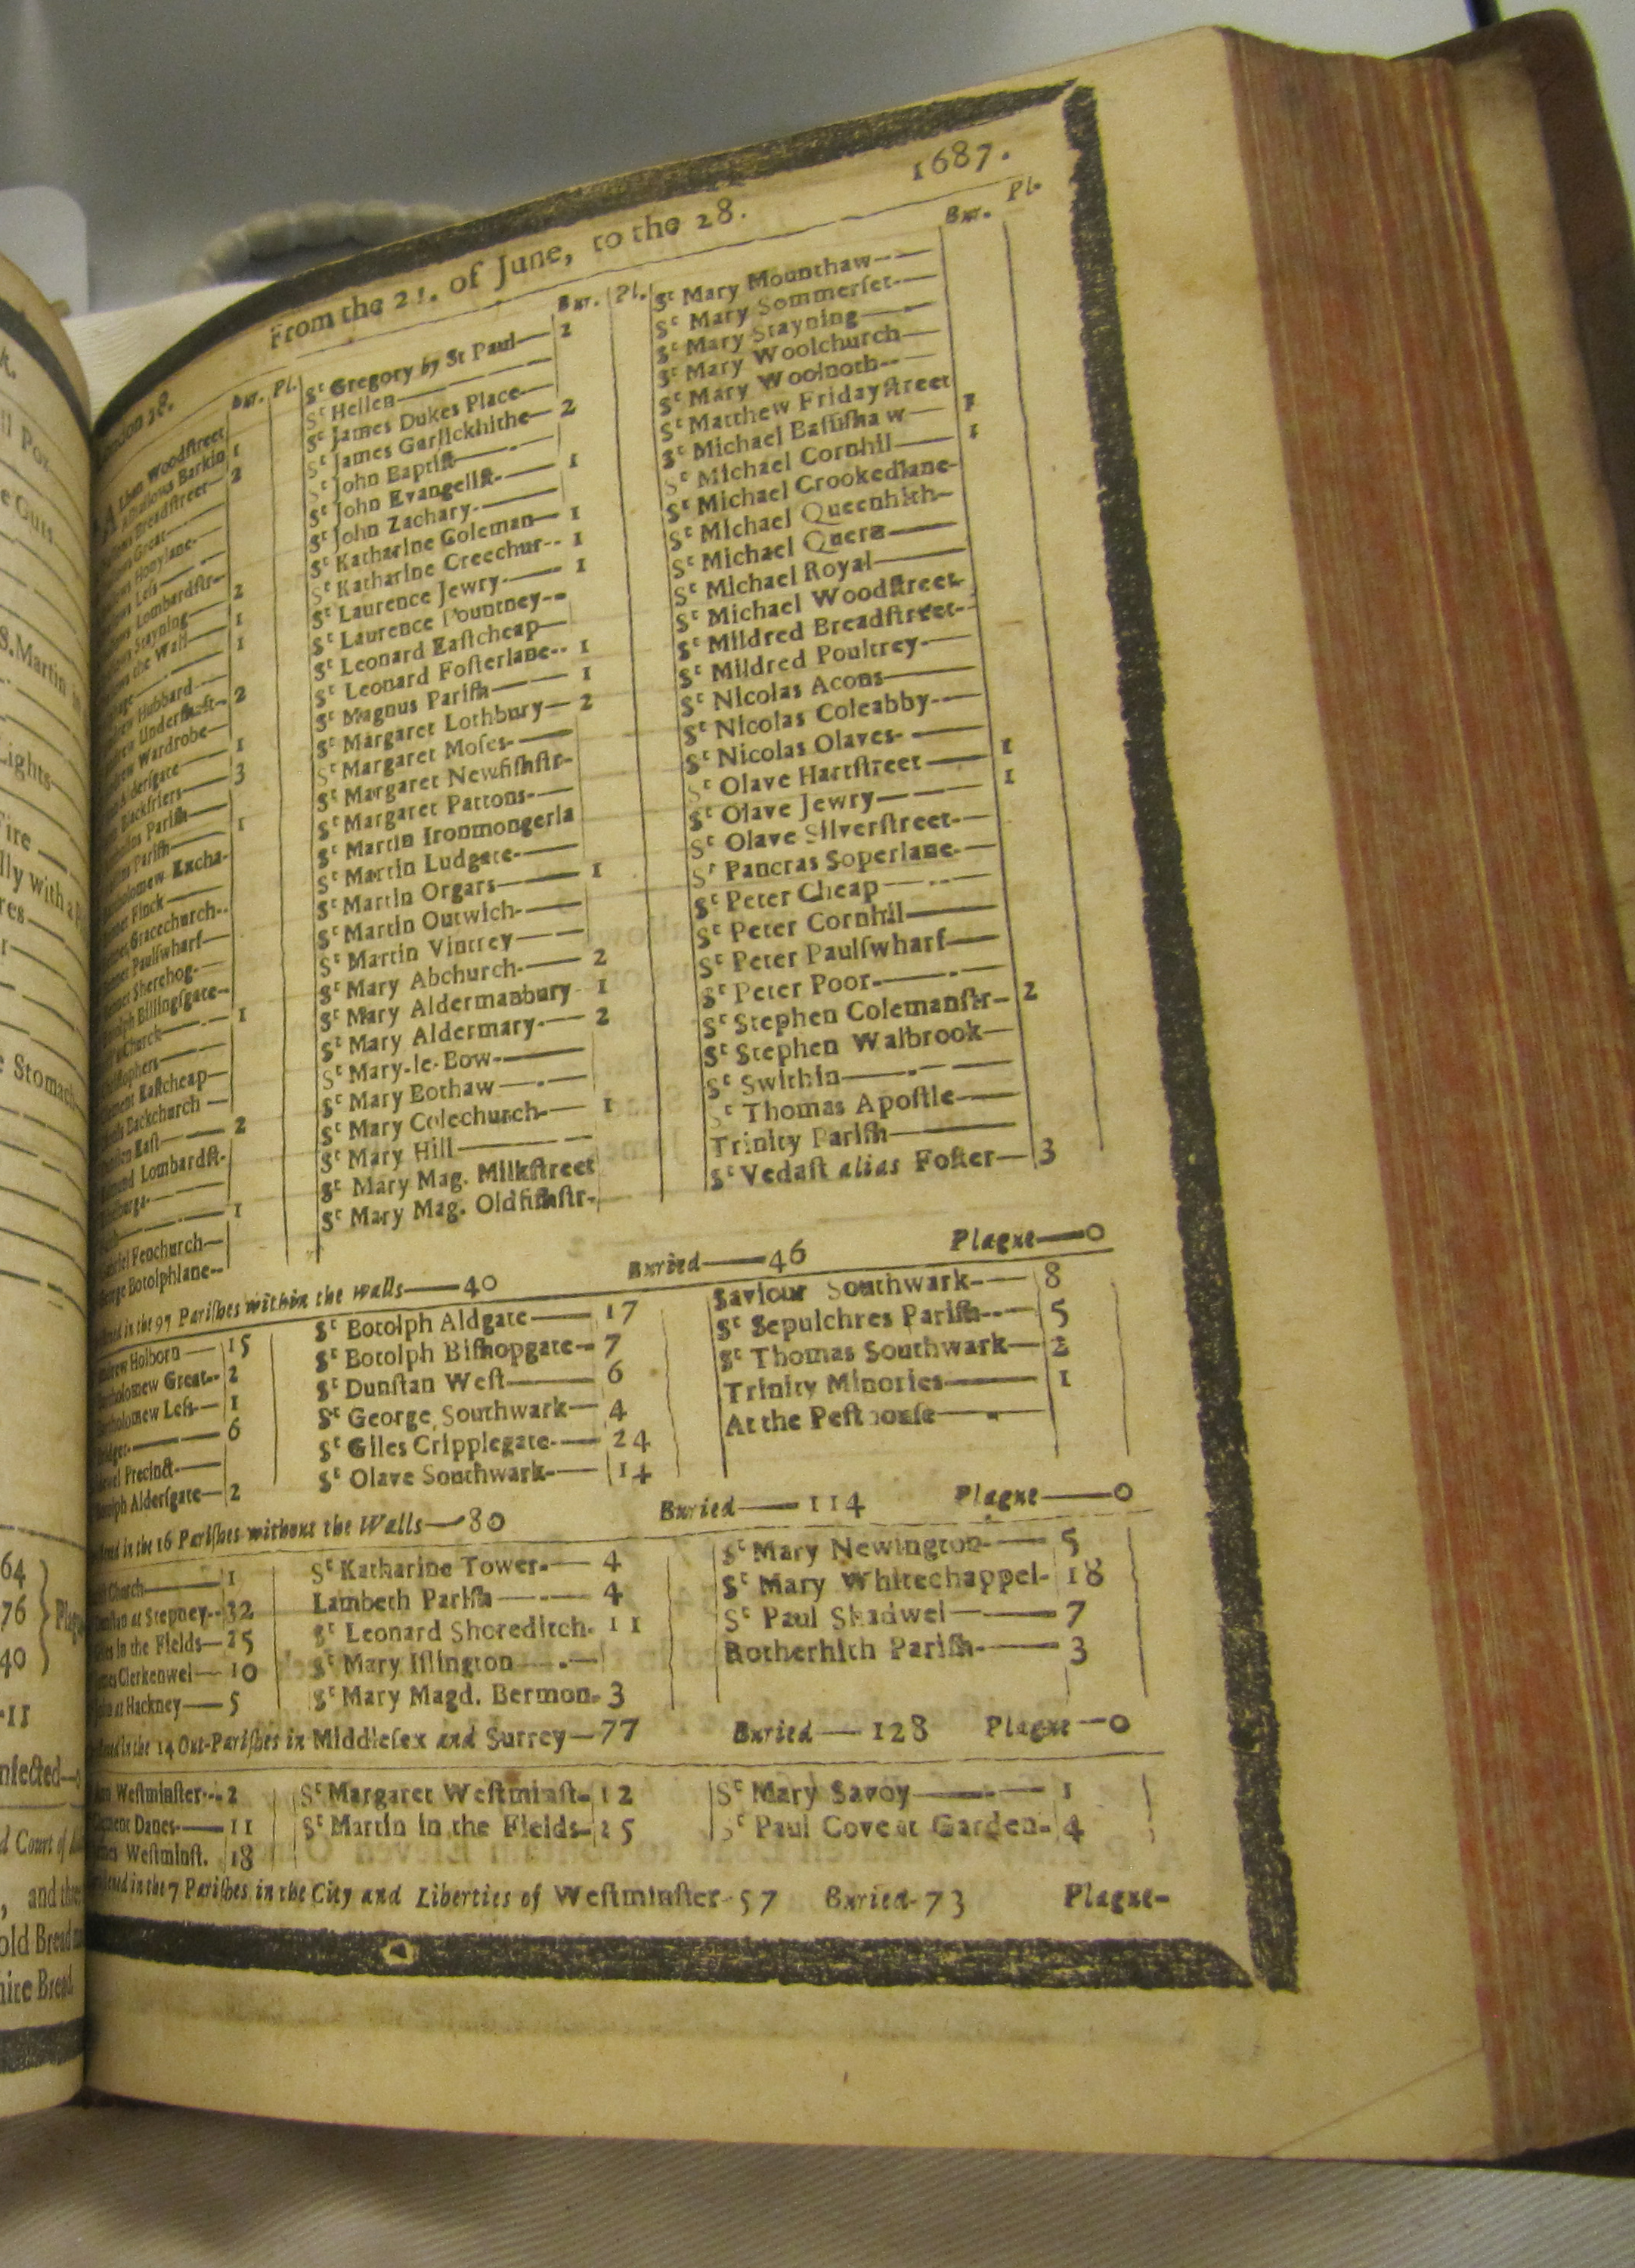 From the 21. of June, to the 28.
1687.
Bur. Pl.
Woodstreet
Barkin 1
Breadstreet— 2
Great—
Honylane-
Less—
Lombardstr-
Stayning— 2
the Wall— 1
1
Hubbard—
Undershaft- 2
Wardrobe—
Aldersgate— 1
Blackfriers— 3
Parish—
Parish— 1
Excha-
Finck—
Gracechurch-
Paulswharf—
Sherehog-—
Billingsgate-
Church— 1
Eastcheap—
Backchurch—
East— 2
Lombardst-
1
Fenchurch—
Botolphlane--
Bur. Pl.
St Gregory by St Paul— 2
St Hellen—
St James Dukes Place—
St James Garlickhithe— 2
St John Baptist—
St John Evangelist- 1
St John Zachary.—
St Katharine Coleman— 1
St Katharine Creechur-- 1
St Laurence Jewry.— 1
St Laurence Pountney--
St Leonard Eastcheap—
St Leonard Fosterlane-- 1
St Magnus Parish— 1
St Margaret Lothbury— 2
St Margaret Moses-—
St Margaret Newfishstr-
St Margaret Pattons-—
St Martin Ironmongerla
St Martin Ludgate-—
St Martin Orgars— 1
St Martin Outwich-—
St Martin Vintrey—
St Mary Abchurch-— 2
St Mary Aldermanbury 1
St Mary Aldermary-— 2
St Mary-le-Bow-—
St Mary Bothaw—
St Mary Colechurch-— 1
St Mary Hill—
St Mary Mag. Milkstreet
St Mary Mag. Oldfishstr-
Bur. Pl.
St Mary Mounthaw-—
St Mary Sommerset-—
St Mary Stayning—
St Mary Woolchurch—
St Mary Woolnoth-—
St Matthew Fridaystreet
St Michael Bassishaw— 1
St Michael Cornhil— 1
St Michael Crookedlane-
St Michael Queenhith-
St Michael Quern—
St Michael Royal—
St Michael Woodstreet-
St Mildred Breadstreet-
St Mildred Poultrey-—
St Nicolas Acons—
St Nicolas Coleabby-—
St Nicolas Olaves-—
St Olave Hartstreet— 1
St Olave Jewry— 1
St Olave Silverstreet-—
St Pancras Soperlane-—
St Peter Cheap—
St Peter Cornhil—
St Peter Paulswharf—
St Peter Poor-—
St Stephen Colemanstr- 2
St Stephen Walbrook—
St Swithin—
St Thomas Apostle—
Trinity Parish—
St Vedast alias Foster— 3
in the 97 Parishes within the walls—40 Buried—46 Plague—0
Holborn— 15
Great-- 2
Less— 1
6
Precinct-—
Aldersgate— 2
St Botolph Aldgate— 17
St Botolph Bishopgate- 7
St Dunstan West— 6
St George Southwark— 4
St Giles Cripplegate-— 24
St Olave Southwark-— 14
Saviour Southwark-— 8
St Sepulchres Parish-- 5
St Thomas Southwark— 2
Trinity Minories— 1
At the Pesthouse—
in the 16 Parishes without the Walls—80 Buried—114 Plague—0
Church— 1
at Stepney-- 32
in the Fields— 25
Clerkenwel— 10
at Hackney— 5
St Katharine Tower-— 4
Lambeth Parish— 4
St Leonard Shoreditch- 11
St Mary Islington—
St Mary Magd. Bermon- 3
St Mary Newington-— 5
St Mary Whitechappel- 18
St Paul Shadwel— 7
Rotherhith Parish-— 3
in the 14 Out-Parishes in Middlesex and Surrey—77 Buried—128 Plague—0
Westminster-- 2
Clement Danes-— 11
Westminst. 18
St Margaret Westminst- 12
St Martin in the Fields- 25
St Mary Savoy— 1
St Paul Covent Garden- 4
in the 7 Parishes in the City and Liberties of Westminster-57 Buried-73 Plague-